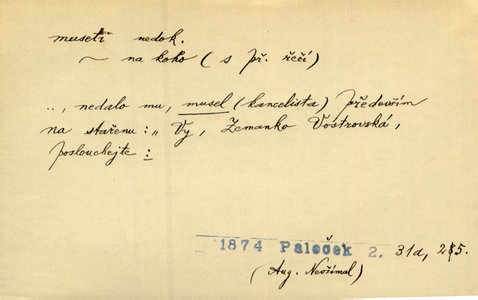 museti nedok.
~ na koho (s př. řečí)
.., nedalo mu, musel (kancelista) především
na stařenu: „ Vy, Zemanko Voştrovská,
poslouchejte:
1874 Paleček 2. 31a, 5.
(Aug. Nevšímal)